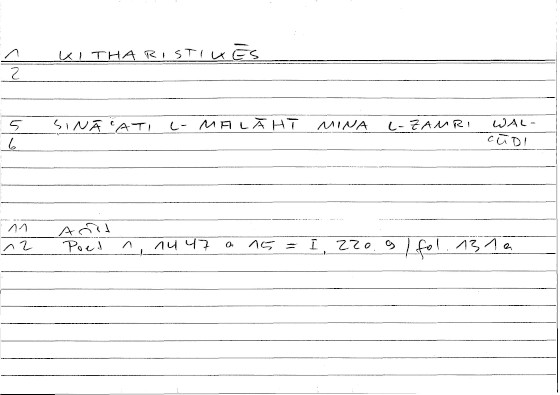 1 KITHARISTIKĒS
2
5 SINĀʿATI L-MALĀHĪ MINA L-ZAMRI WAL-
6 ʿŪDI
11
12 Poet 1, 1447 a 15 = I, 220.9 / fol. 131a